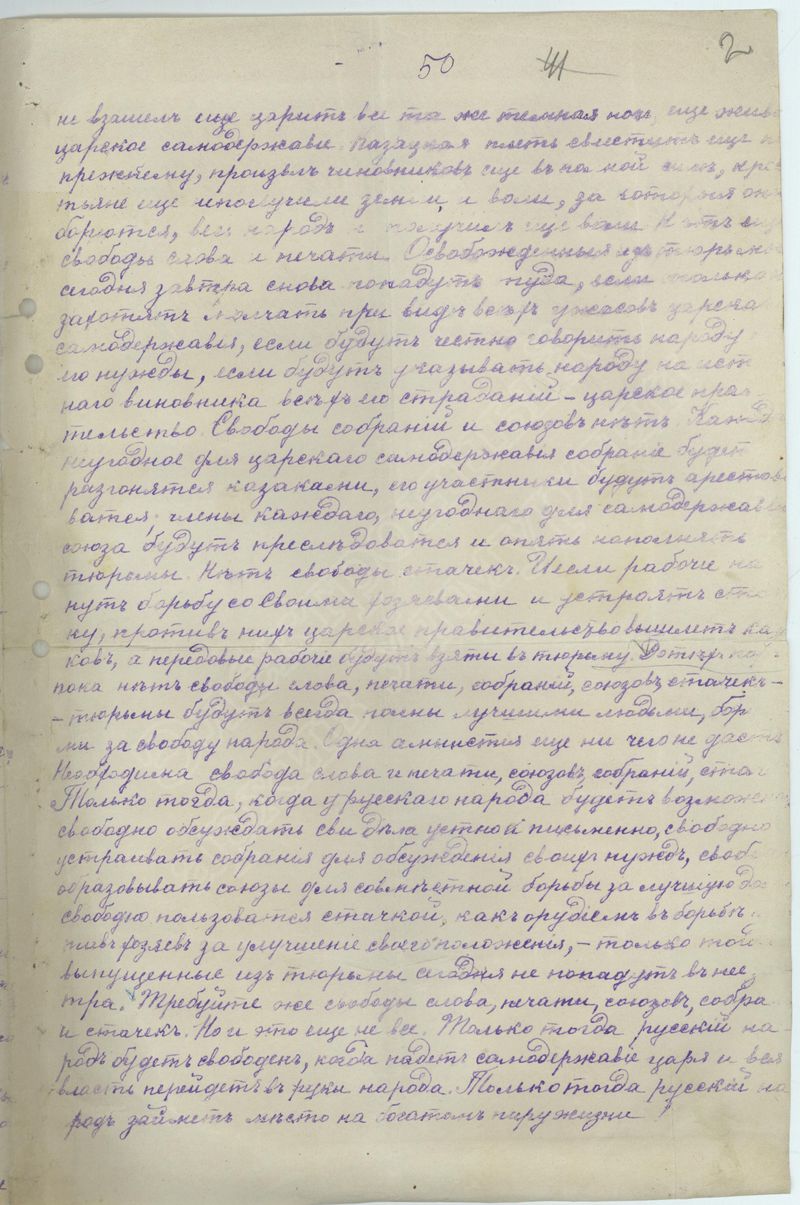 50 2
не взашелъ еще царитъ все та же темная ночь, еще живо
царское самодержавіе. Казацкая плеть свиститъ еще п
прежнему, произволъ чиновниковъ еще въ полной силѣ, кре
тьяне еще неполучили земли и воли, за которыя они
борются, весь народъ не получилъ еще воли. Нѣтъ еще
свободы слова и печати. Освобожденныя изъ тюрьмы
сегодня завтра снова попадутъ туда, если только не
захотятъ молчать при видѣ всѣхъ ужасовъ царска
самодержавія, если будутъ честно говорить народу
его нужды, если будутъ указывать народу на ист
наго виновника всѣхъ его страданій – царское прави
тельство. Свободы собраній и союзовъ нѣтъ. Кажд
неугодное для царскаго самодержавія собраніе будет
разгонятся казаками, его участники будутъ арестовы
ватся, члены каждаго, неугоднаго для самодержавія
союза будутъ преслѣдоватся и опять наполнять
тюрьмы. Нѣтъ свободы стачекъ. И если рабочіе на
нутъ борьбу со своими хозяевами и устроятъ ста
ку, противъ нихъ царское правительство вышлетъ каза
ковъ, а передовые рабочіе будутъ взяты въ тюрьму.
пока нѣтъ свободы слова, печати, собраній, союзовъ, стачекъ –
– тюрьмы будутъ всегда полны лучшими людьми, бор
ми за свободу народа. Одна амнистія еще ни чего не дастъ
Необходима свобода слова и печати, союзовъ, собраній, стач
Только тогда, когда у русскаго народа будетъ возможн
свободно обсуждать свои дѣла устно и письменно, свободно
устраивать собранія для обсужденія своихъ нуждъ, свобо
образовывать союзы для совмѣстной борьбы за лучшую до
свободно пользоватся стачкой, какъ орудіемъ въ борьбѣ п
тивъ хозяевъ за улучшеніе своего положенія, – только тогд
выпущенные изъ тюрьмы сегодня не попадутъ въ нее з
тра. Требуйте же свободы слова, печати, союзовъ, собра
и стачекъ. Но и это еще не все. Только тогда русскій на
родъ будетъ свободенъ, когда падетъ самодержавіе царя и вся
власть перейдетъ въ руки народа. Только тогда русскій на
родъ займетъ мѣсто на богатомъ пиру жизни!